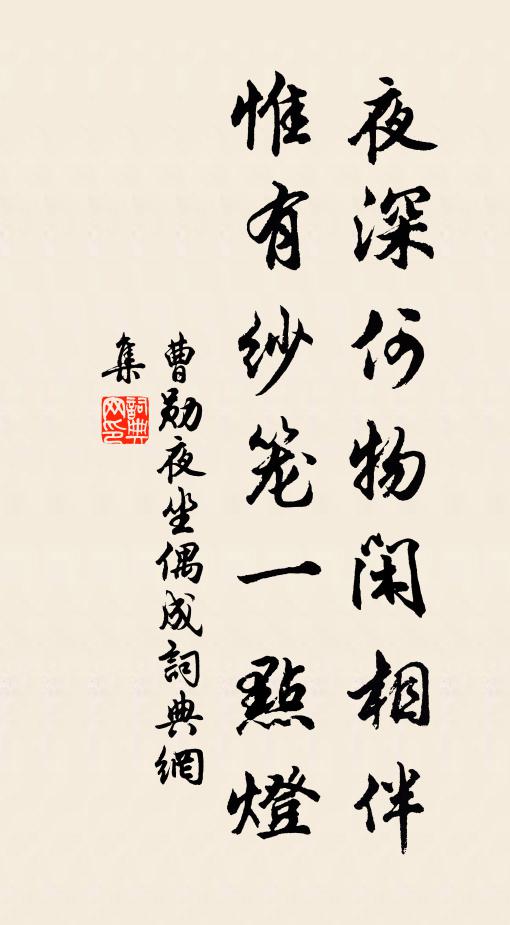 夜深何物閑相伴
惟有紗笼一點燈
曹勛夜坐偶成詞典網
集
詞典
网印